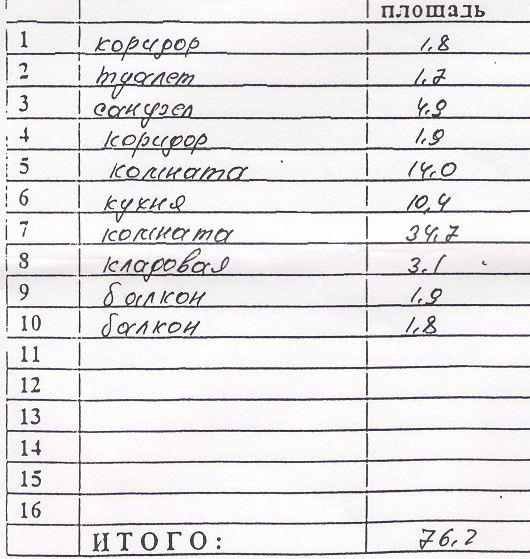 площадь
1 коридор 1,8
2 туалет 1,7
3 санузел 4,9
4 коридор 1,9
5 комната 14,0
6 кухня 10,4
7 комната 34,7
8 кладовая 3,1
9 балкон 1,9
10 балкон 1,8
11
12
13
14
15
16
ИТОГО: 76,2